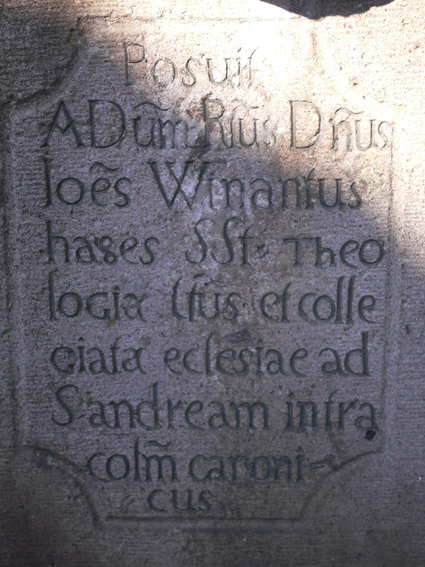 Posuit
ADũm Rĩus Dñus
Ioẽs Wĩnantus
hages SSt. Theo
logiæ Lt̃us et colle
giatæ eclesiae ad
S. andream intra
colm̃ canoni-
cus